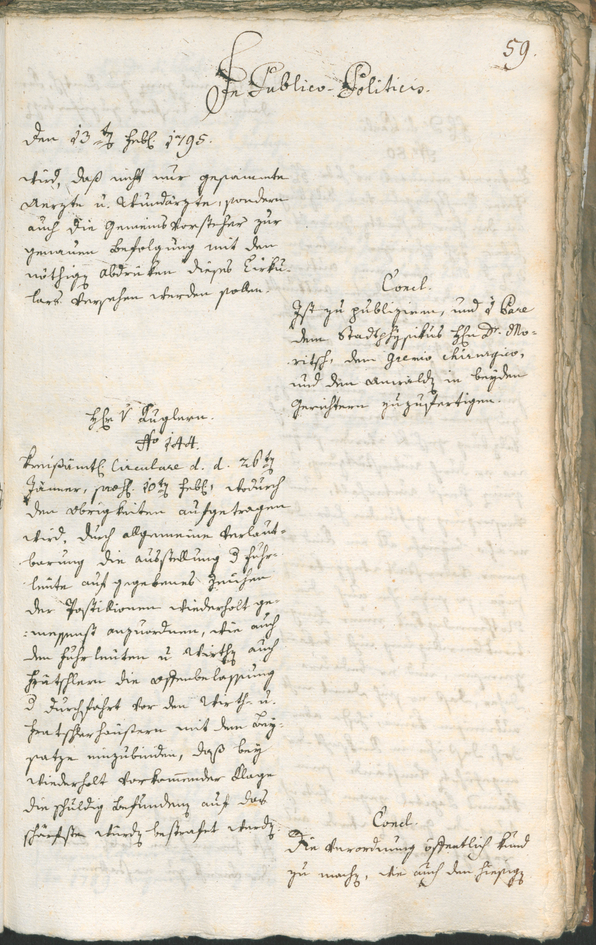 59.
In Publico-Politicis.
Den 13ten Febl. 1795.
wird, daß nicht nur gesammte
Aerzte u. Wundärzte, sondern
auch die Gemeinsvorsteher zur
genauen Befolgung mit den
nöthigen Abdrüken dieses Cirku-
lars versehen werden sollen.
Concl.
Ist zu publiziren, und 1 Pare
dem Stadtphysikus Hhn Dr. Mo-
ritsch, dem Gremio chirurgico,
und den Anwäldten in beyden
Gerichtern zuzufertigen.
Hhr V Kuglern.
No 144.
Kreisämtl. Circulare d. d. 26ten
Jänner, praes. 10ten Febl., wodurch
den Obrigkeiten aufgetragen
wird, durch allgemeine Verlaut-
barung die Ausstellung d Fuhr-
leute auf gegebenes Zeichen
der Postillionen wiederholt ge-
messenst anzuordnen, wie auch
den Fuhrleuten u Wirthen auch
Frätschlern die Offenbelassung
d Durchfahrt vor den Wirth- u.
Fratschlerhäusern mit dem Bey-
satze einzubinden, daß bey
wiederholt vorkommender Klage
die schuldig befundenen auf das
schärfste würden bestrafet werden.
Concl.
Die Verordnung öffentlich kund
zu machen, wie auch den hiesigen